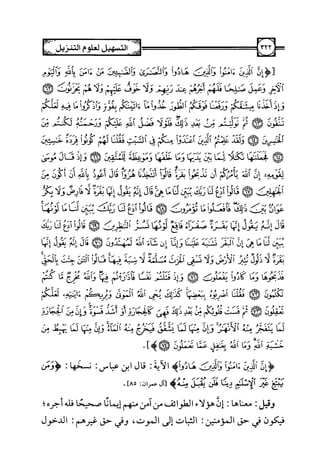 ٣٢٢ التسهيل لعلوم التنزيل
[﴿إِنَّ الَّذِينَ ءَامَنُوا وَالَّذِينَ هَادُوا وَالنَّصَارَىٰ وَالصَّابِئِينَ مَنْ ءَامَنَ بِاللَّهِ وَالْيَوْمِ
الْآخِرِ وَعَمِلَ صَالِحًا فَلَهُمْ أَجْرُهُمْ عِندَ رَبِّهِمْ وَلَا خَوْفٌ عَلَيْهِمْ وَلَا هُمْ يَحْزَنُونَ ٦٢
وَإِذْ أَخَذْنَا مِيثَاقَكُمْ وَرَفَعْنَا فَوْقَكُمُ الطُّورَ خُذُوا مَا ءَاتَيْنَاكُم بِقُوَّةٍ وَاذْكُرُوا مَا فِيهِ لَعَلَّكُمْ
تَتَّقُونَ ٦٣ ثُمَّ تَوَلَّيْتُم مِّنۢ بَعْدِ ذَٰلِكَ فَلَوْلَا فَضْلُ اللَّهِ عَلَيْكُمْ وَرَحْمَتُهُ لَكُنتُم مِّنَ
الْخَاسِرِينَ ٦٤ وَلَقَدْ عَلِمْتُمُ الَّذِينَ اعْتَدَوْا مِنكُمْ فِي السَّبْتِ فَقُلْنَا لَهُمْ كُونُوا قِرَدَةً خَاسِئِينَ
٦٥ فَجَعَلْنَاهَا نَكَالًا لِّمَا بَيْنَ يَدَيْهَا وَمَا خَلْفَهَا وَمَوْعِظَةً لِّلْمُتَّقِينَ ٦٦ وَإِذْ قَالَ مُوسَىٰ
لِقَوْمِهِ إِنَّ اللَّهَ يَأْمُرُكُمْ أَن تَذْبَحُوا بَقَرَةً قَالُوا أَتَتَّخِذُنَا هُزُؤًا قَالَ أَعُوذُ بِاللَّهِ أَنْ أَكُونَ مِنَ
الْجَاهِلِينَ ٦٧ قَالُوا ادْعُ لَنَا رَبَّكَ يُبَيِّن لَّنَا مَا هِيَ قَالَ إِنَّهُ يَقُولُ إِنَّهَا بَقَرَةٌ لَّا فَارِضٌ وَلَا بِكْرٌ
عَوَانٌ بَيْنَ ذَٰلِكَ فَافْعَلُوا مَا تُؤْمَرُونَ ٦٨ قَالُوا ادْعُ لَنَا رَبَّكَ يُبَيِّن لَّنَا مَا لَوْنُهَا
قَالَ إِنَّهُ يَقُولُ إِنَّهَا بَقَرَةٌ صَفْرَاءُ فَاقِعٌ لَّوْنُهَا تَسُرُّ النَّاظِرِينَ ٦٩ قَالُوا ادْعُ لَنَا رَبَّكَ
يُبَيِّن لَّنَا مَا هِيَ إِنَّ الْبَقَرَ تَشَابَهَ عَلَيْنَا وَإِنَّا إِن شَاءَ اللَّهُ لَمُهْتَدُونَ ٧٠ قَالَ إِنَّهُ يَقُولُ إِنَّهَا
بَقَرَةٌ لَّا ذَلُولٌ تُثِيرُ الْأَرْضَ وَلَا تَسْقِي الْحَرْثَ مُسَلَّمَةٌ لَّا شِيَةَ فِيهَا قَالُوا الْآنَ جِئْتَ بِالْحَقِّ
فَذَبَحُوهَا وَمَا كَادُوا يَفْعَلُونَ ٧١ وَإِذْ قَتَلْتُمْ نَفْسًا فَادَّارَأْتُمْ فِيهَا وَاللَّهُ مُخْرِجٌ مَّا كُنتُمْ
تَكْتُمُونَ ٧٢ فَقُلْنَا اضْرِبُوهُ بِبَعْضِهَا كَذَٰلِكَ يُحْيِ اللَّهُ الْمَوْتَىٰ وَيُرِيكُمْ ءَايَاتِهِ لَعَلَّكُمْ
تَعْقِلُونَ ٧٣ ثُمَّ قَسَتْ قُلُوبُكُم مِّنۢ بَعْدِ ذَٰلِكَ فَهِيَ كَالْحِجَارَةِ أَوْ أَشَدُّ قَسْوَةً وَإِنَّ مِنَ الْحِجَارَةِ
لَمَا يَتَفَجَّرُ مِنْهُ الْأَنْهَارُ وَإِنَّ مِنْهَا لَمَا يَشَّقَّقُ فَيَخْرُجُ مِنْهُ الْمَاءُ وَإِنَّ مِنْهَا لَمَا يَهْبِطُ مِنْ
خَشْيَةِ اللَّهِ وَمَا اللَّهُ بِغَافِلٍ عَمَّا تَعْمَلُونَ ٧٤﴾].
﴿إِنَّ الَّذِينَ ءَامَنُوا وَالَّذِينَ هَادُوا﴾ الآيةَ: قال ابن عباس: نسخَها: ﴿وَمَن
يَبْتَغِ غَيْرَ الْإِسْلَامِ دِينًا فَلَن يُقْبَلَ مِنْهُ﴾ [آل عمران: ٨٥].
وقيل: معناها: إنَّ هؤلاء الطوائفَ من آمن منهم إيمانًا صحيحًا فله أجره؛
فيكون في حق المؤمنين: الثبات إلى الموت، وفي حق غيرهم: الدخول